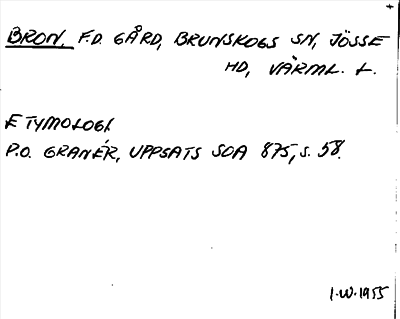 BRON. F.D. GÅRD, BRUNSKOGS SN, JÖSSE
HD, VÄRML. L.
ETYMOLOGI.
P.O. GRANÉR, UPPSATS SOA 875, S. 58.
I.W. 1955